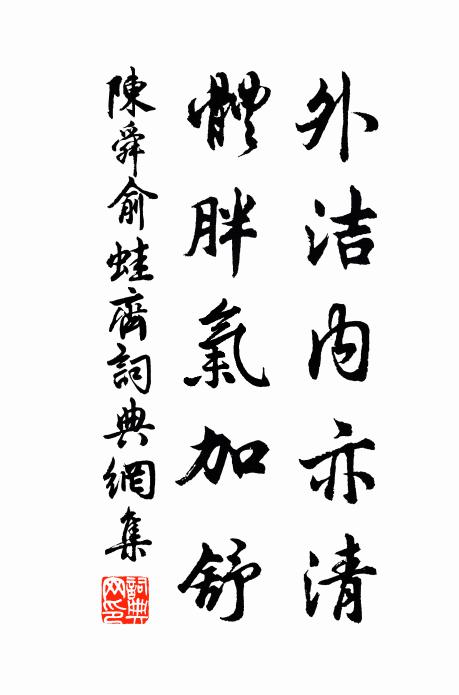 外洁内亦清
體胖氣加舒
陳舜俞蛙齋詞典網集
詞典网印